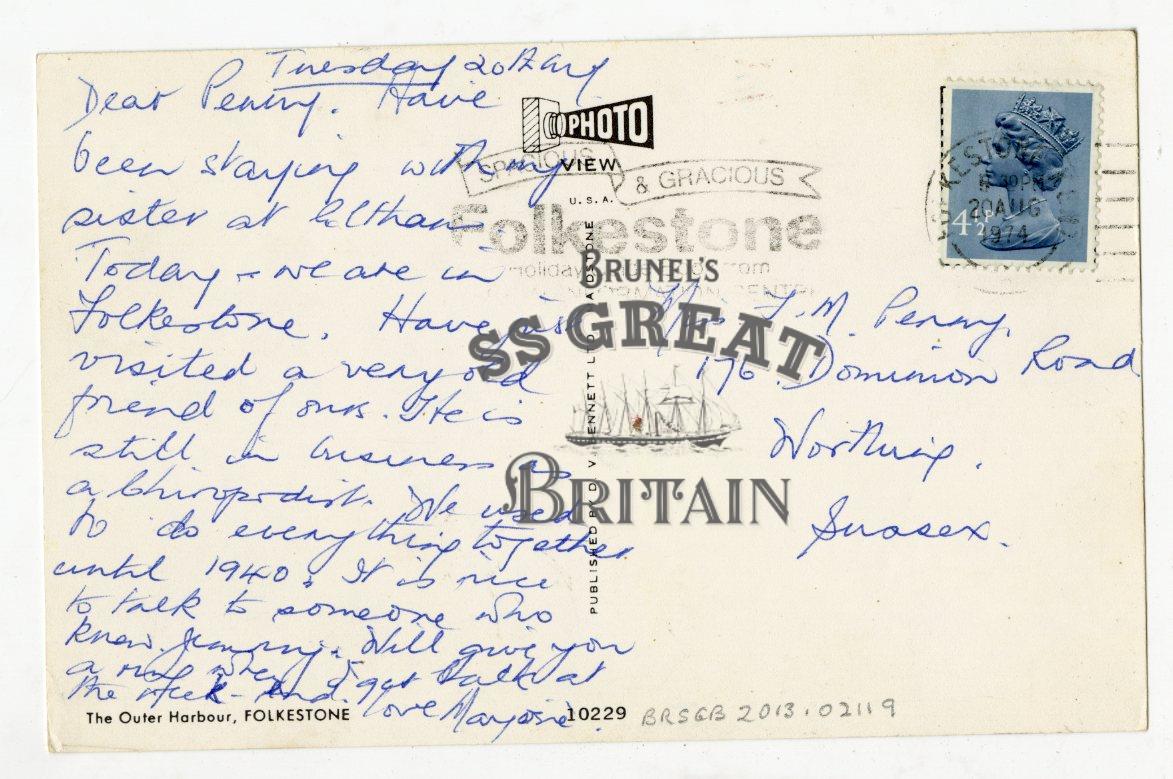 Tuesday 20th Aug
Dear Penny. Have
been staying with my
sister at Eltham.
Today - we are in
Folkestone. Have just
visited a very old
friend of ours. He is
still in business as
a Chiropodist. We used
to do everything together
until 1940. It is nice
to talk to someone who
knew Jimmy. Will give you
a ring when I get back at
the week-end. love Marjorie.
The Outer Harbour, FOLKESTONE
10229
BRSGB 2013.02119
PHOTO
VIEW
U.S.A.
PUBLISHED BY D.V. BENNETT LTD
SPACIOUS
& GRACIOUS
Folkestone
BRUNEL'S
SS GREAT
BRITAIN
FOLKESTONE
PM
20 AUG
1974
4½P
F. M. Penny.
176. Dominion Road
Worthing.
Sussex.